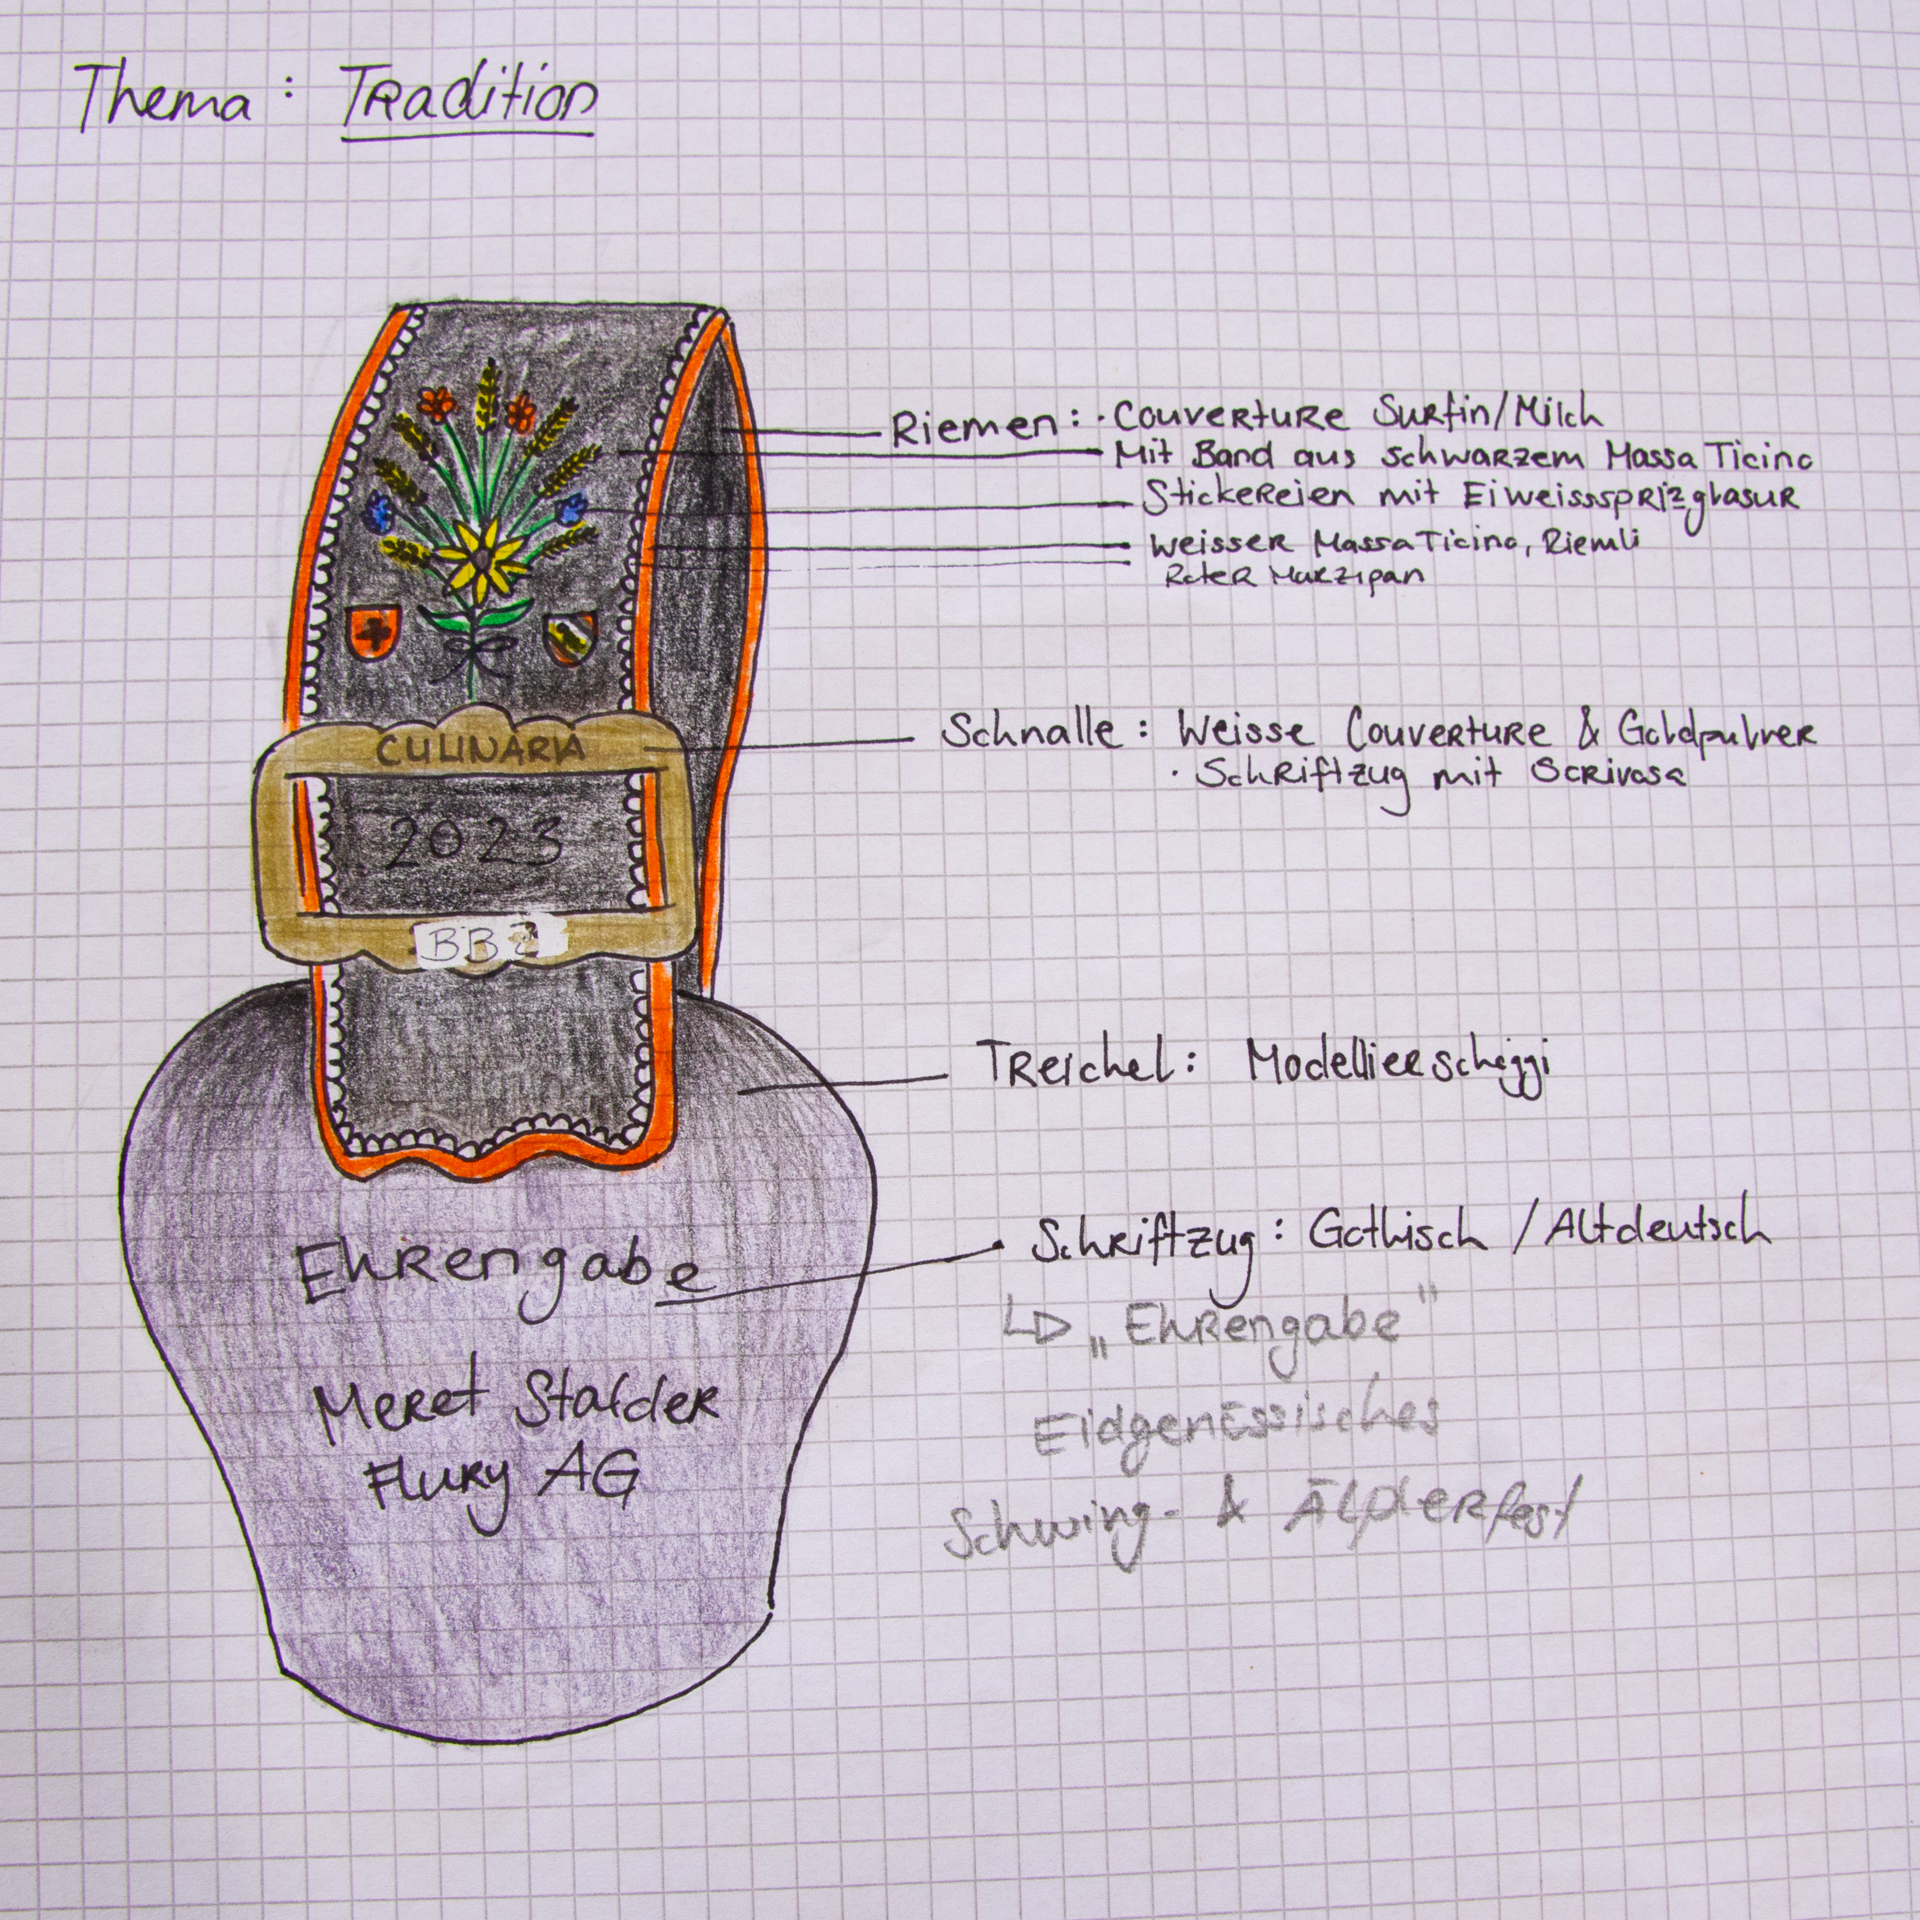 Thema: Tradition
Riemen: · Couverture Surfin/Milch
Mit Band aus schwarzem Massa Ticino
Stickereien mit Eiweissspritzglasur
weisser Massa Ticino, Riemli
Roter Marzipan
CULINARIA
Schnalle: Weisse Couverture & Goldpulver
· Schriftzug mit Scrivosa
2023
Treichel: Modellierschoggi
Schriftzug: Gothisch / Altdeutsch
Ehrengabe
↳ „Ehrengabe"
Meret Stalder
Flury AG
Eidgenössisches
Schwing- & Älplerfest